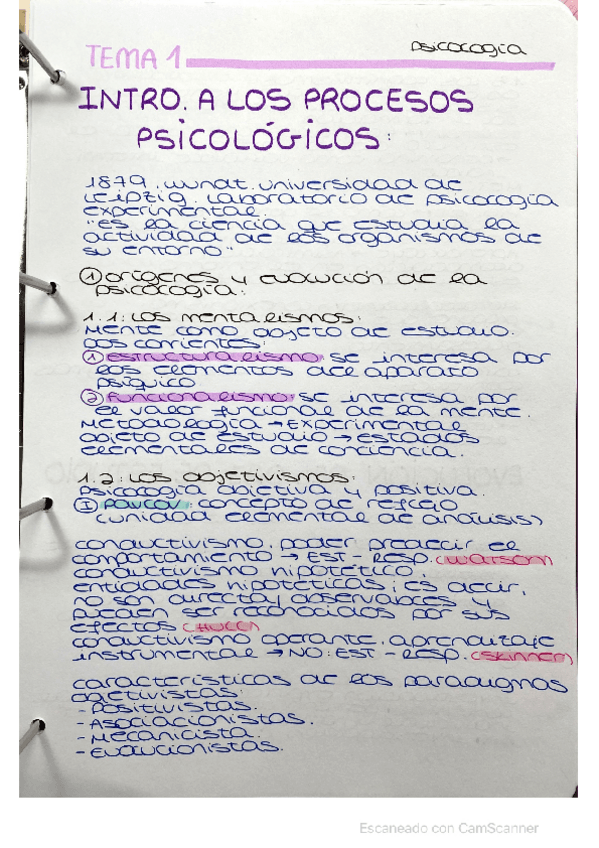 psicología
TEMA 1
INTRO. A LOS PROCESOS
PSICOLÓGICOS:
1879. wundt. universidad de
Leipzig. Laboratorio de psicología
experimental.
"es la ciencia que estudia la
actividad de los organismos de
su entorno"
① orígenes y evolución de la
psicología:
1.1: Los mentalismos:
Mente como objeto de estudio.
Dos corrientes:
① estructuralismo: se interesa por
los elementos del aparato
psíquico
② Funcionalismo: se interesa por
el valor funcional de la mente.
Metodología → Experimental
objeto de estudio → estados
elementales de conciencia.
1.2: Los objetivismos:
Psicología objetiva y positiva.
① Pavlov: concepto de reflejo
(unidad elemental de análisis)
conductivismo, poder predecir el
comportamiento → EST - RESP. (WATSON)
conductivismo hipotético,
entidades hipotéticas; es decir,
no son directay observables y
pueden ser reconocidos por sus
efectos (HULL)
conductivismo operante. aprendizaje
instrumental → NO: EST - RESP. (SKINNER)
características de los paradigmas
objetivistas:
- Positivistas.
- Asociacionistas.
- Mecanicista.
- Evolucionistas.
Escaneado con CamScanner